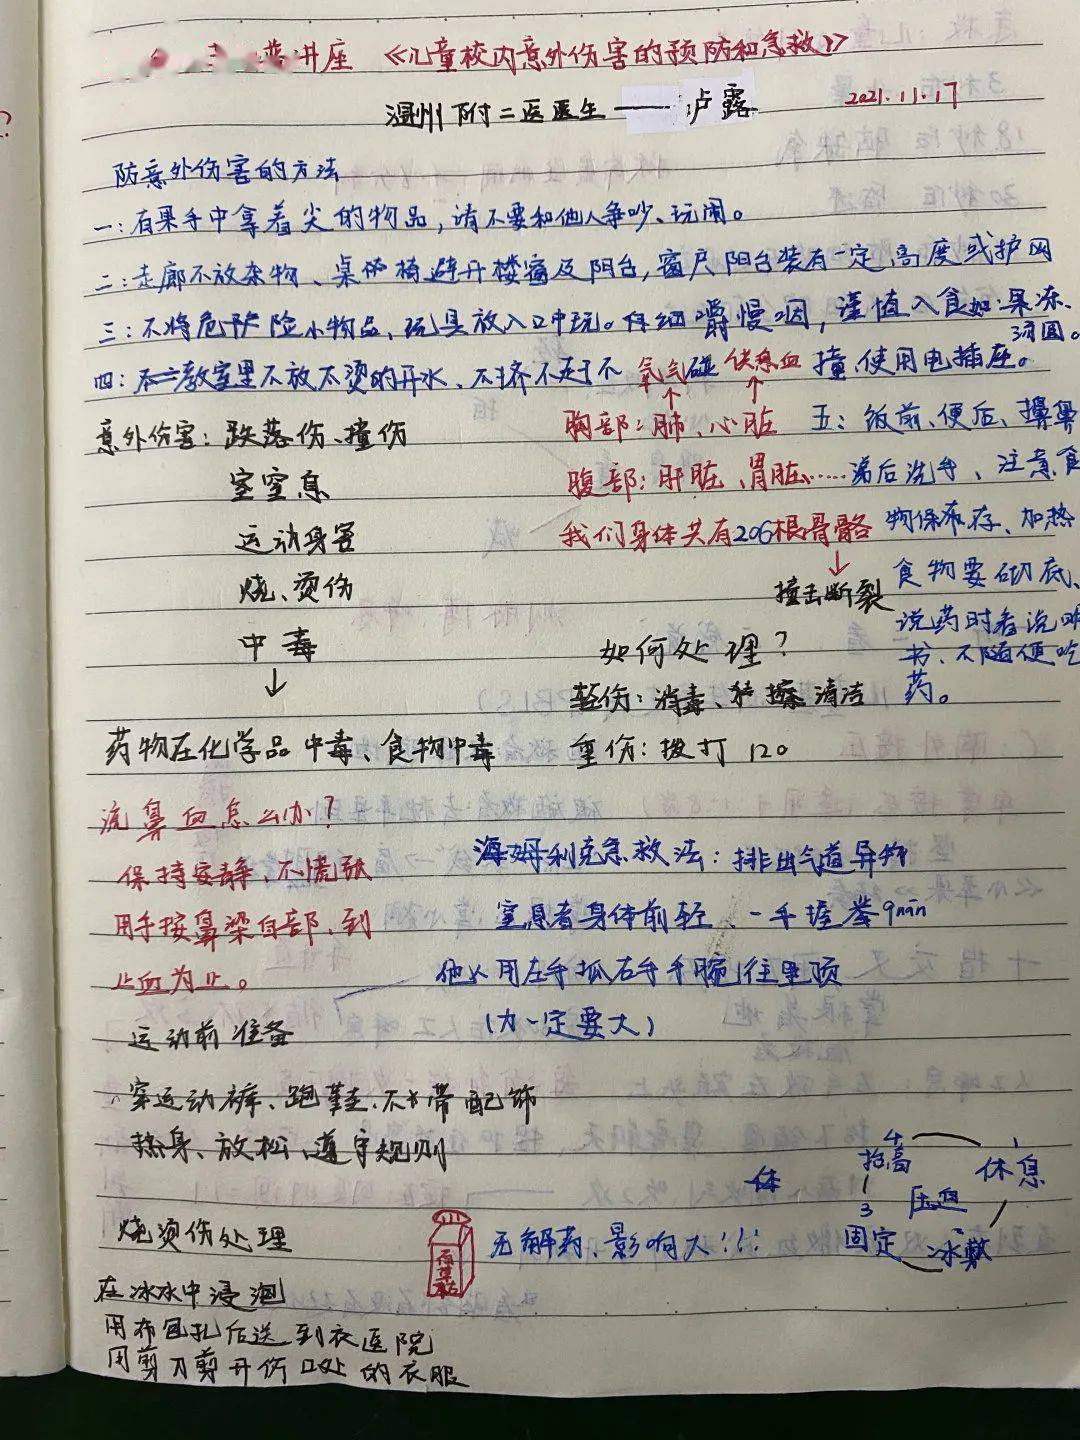 讲座 《儿童校内意外伤害的预防和急救》
温州附二医医生——卢露 2021.11.17
防意外伤害的方法
一:有果手中拿着尖的物品,请不要和他人争吵、玩闹。
二:走廊不放杂物、桌椅避开楼窗及阳台,窗户阳台装有一定高度或护网
三:不将危险小物品、玩具放入口中玩。仔细嚼慢咽,谨慎入食如:果冻、汤圆。
四:教室里不放太烫的开水、不挤不 碰撞、使用电插座。
氧气 供应血
胸部:肺、心脏
腹部:肝脏、胃脏……
我们身体共有206根骨骼
↓
撞击断裂
五:饭前、便后、擤鼻
涕后洗手、注意食
物保存、加热
食物要彻底、
说药时看说明
书、不随便吃
药。
意外伤害:跌落伤、撞伤
窒息
运动身害
烧、烫伤
中毒
↓
药物在化学品中毒、食物中毒
如何处理?
轻伤:消毒、擦清洁
重伤:拨打120
流鼻血怎么办?
保持安静、不慌张
用手按鼻梁自部、到
止血为止。
海姆利克急救法:排出气道异物
窒息者身体前轻、一手握拳
他人用左手抓右手手腕往里顶
(力一定要大)
运动前准备
穿运动裤、跑鞋、不带配饰
热身、放松、遵守规则
烧烫伤处理
在冰水中浸泡
用布包扎后送到医院
用剪刀剪开伤口处的衣服
百草枯
无解药、影响大!!!
体
4
抬高
1
休息
压迫
3
固定
2
冰敷